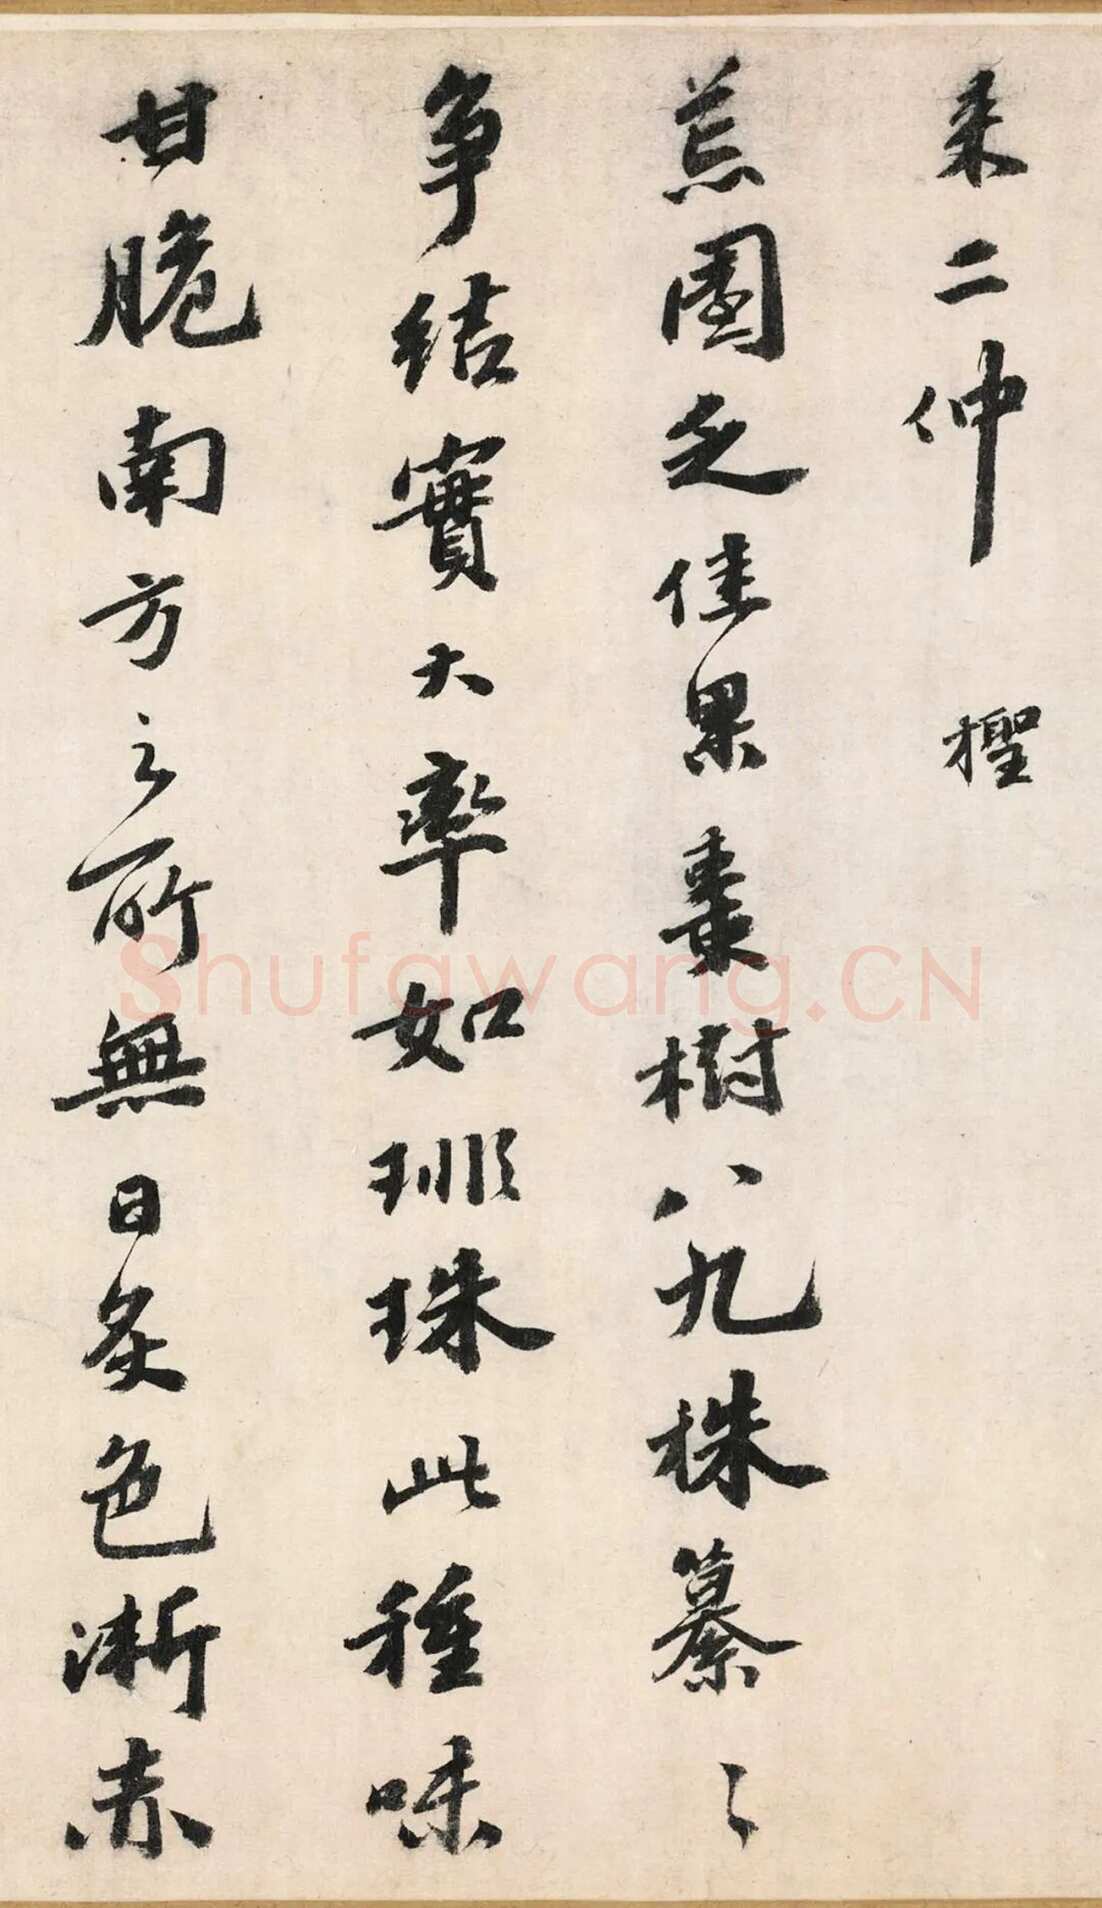 來二仲 檉
荒園乏佳果棗樹八九株纂〻
爭結實大率如琲珠此種味
甘脆南方之所無日炙色漸赤
Shufawang.CN